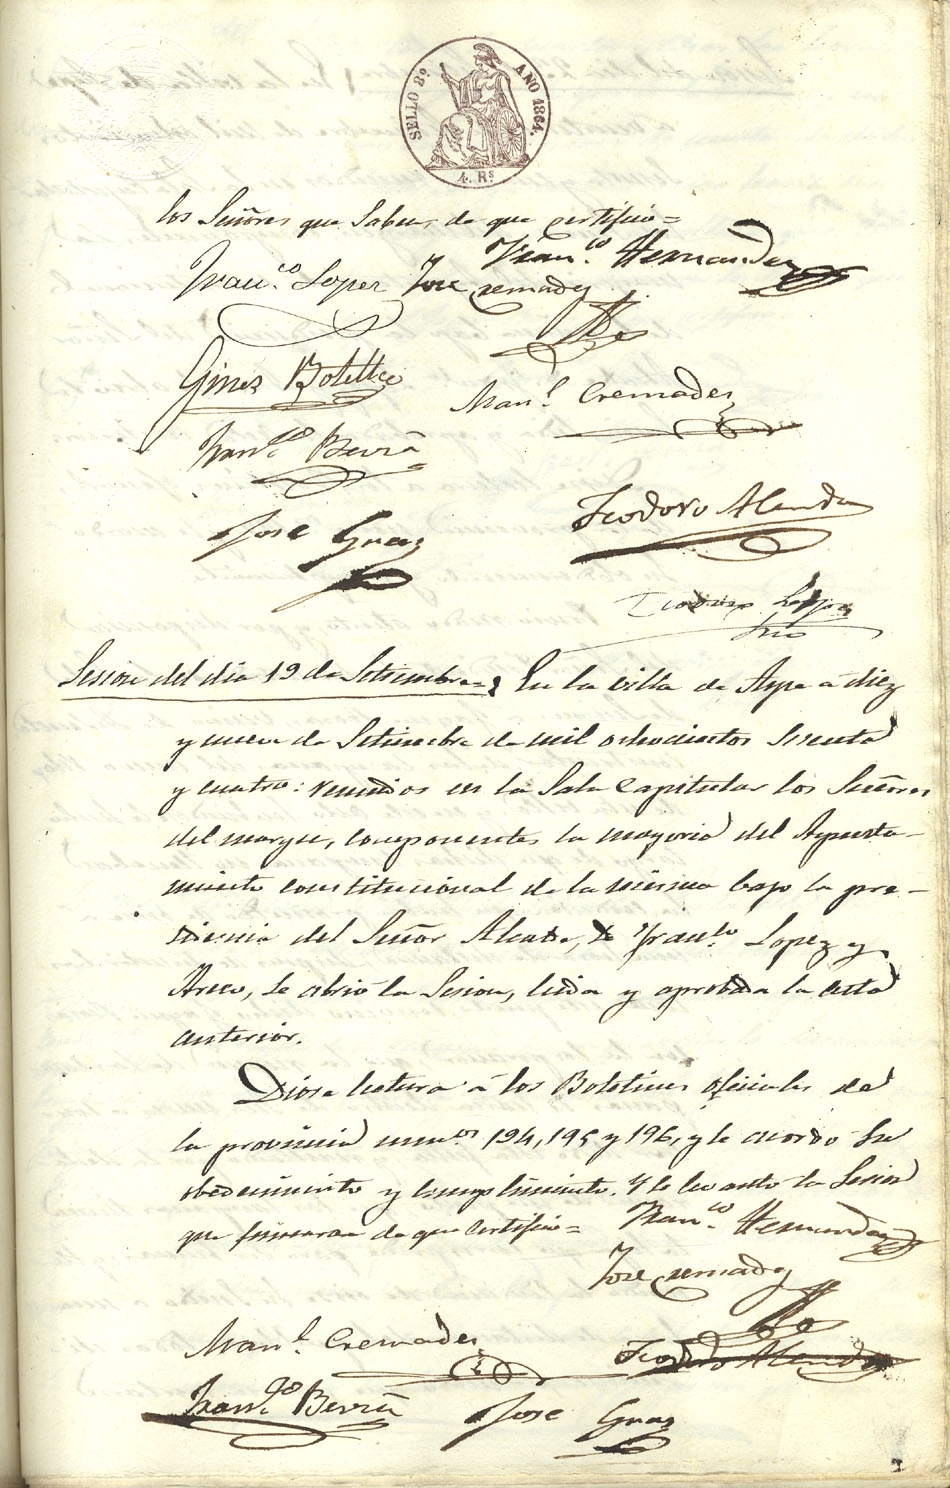 SELLO 8º AÑO 1864.
4. Rs
los Señores que Saben, de que certifico=
Franco. Lopez Jose Cremades Franco. Hernandez
Ginez Botella
Manl. Cremades
Franco Berná
Teodoro Alenda
Jose Gras
Teodoro Lopez
Srio
Sesion del dia 19 de Setiembre= En la villa de Aspe a diez
y nueve de Setiembre de mil ochocientos sesenta
y cuatro: reunidos en la Sala Capitular los Señores
del margen, componentes la mayoria del Ayunta-
miento constitucional de la misma bajo la pre-
sidencia del Señor Alcalde, Dn Franco Lopez y
se abrió la Sesion, leida y aprobada la acta
anterior.
Diose lectura á los Boletines oficiales de
la provincia numos 194, 195 y 196, y se acordó su
obedecimiento y cumplimiento. Y se levanto la Sesion
que firmaran de que certifico=
Franco Hernandez
Jose Cremades
Manl. Cremades
Teodoro Alenda
Franco Berná Jose Gras